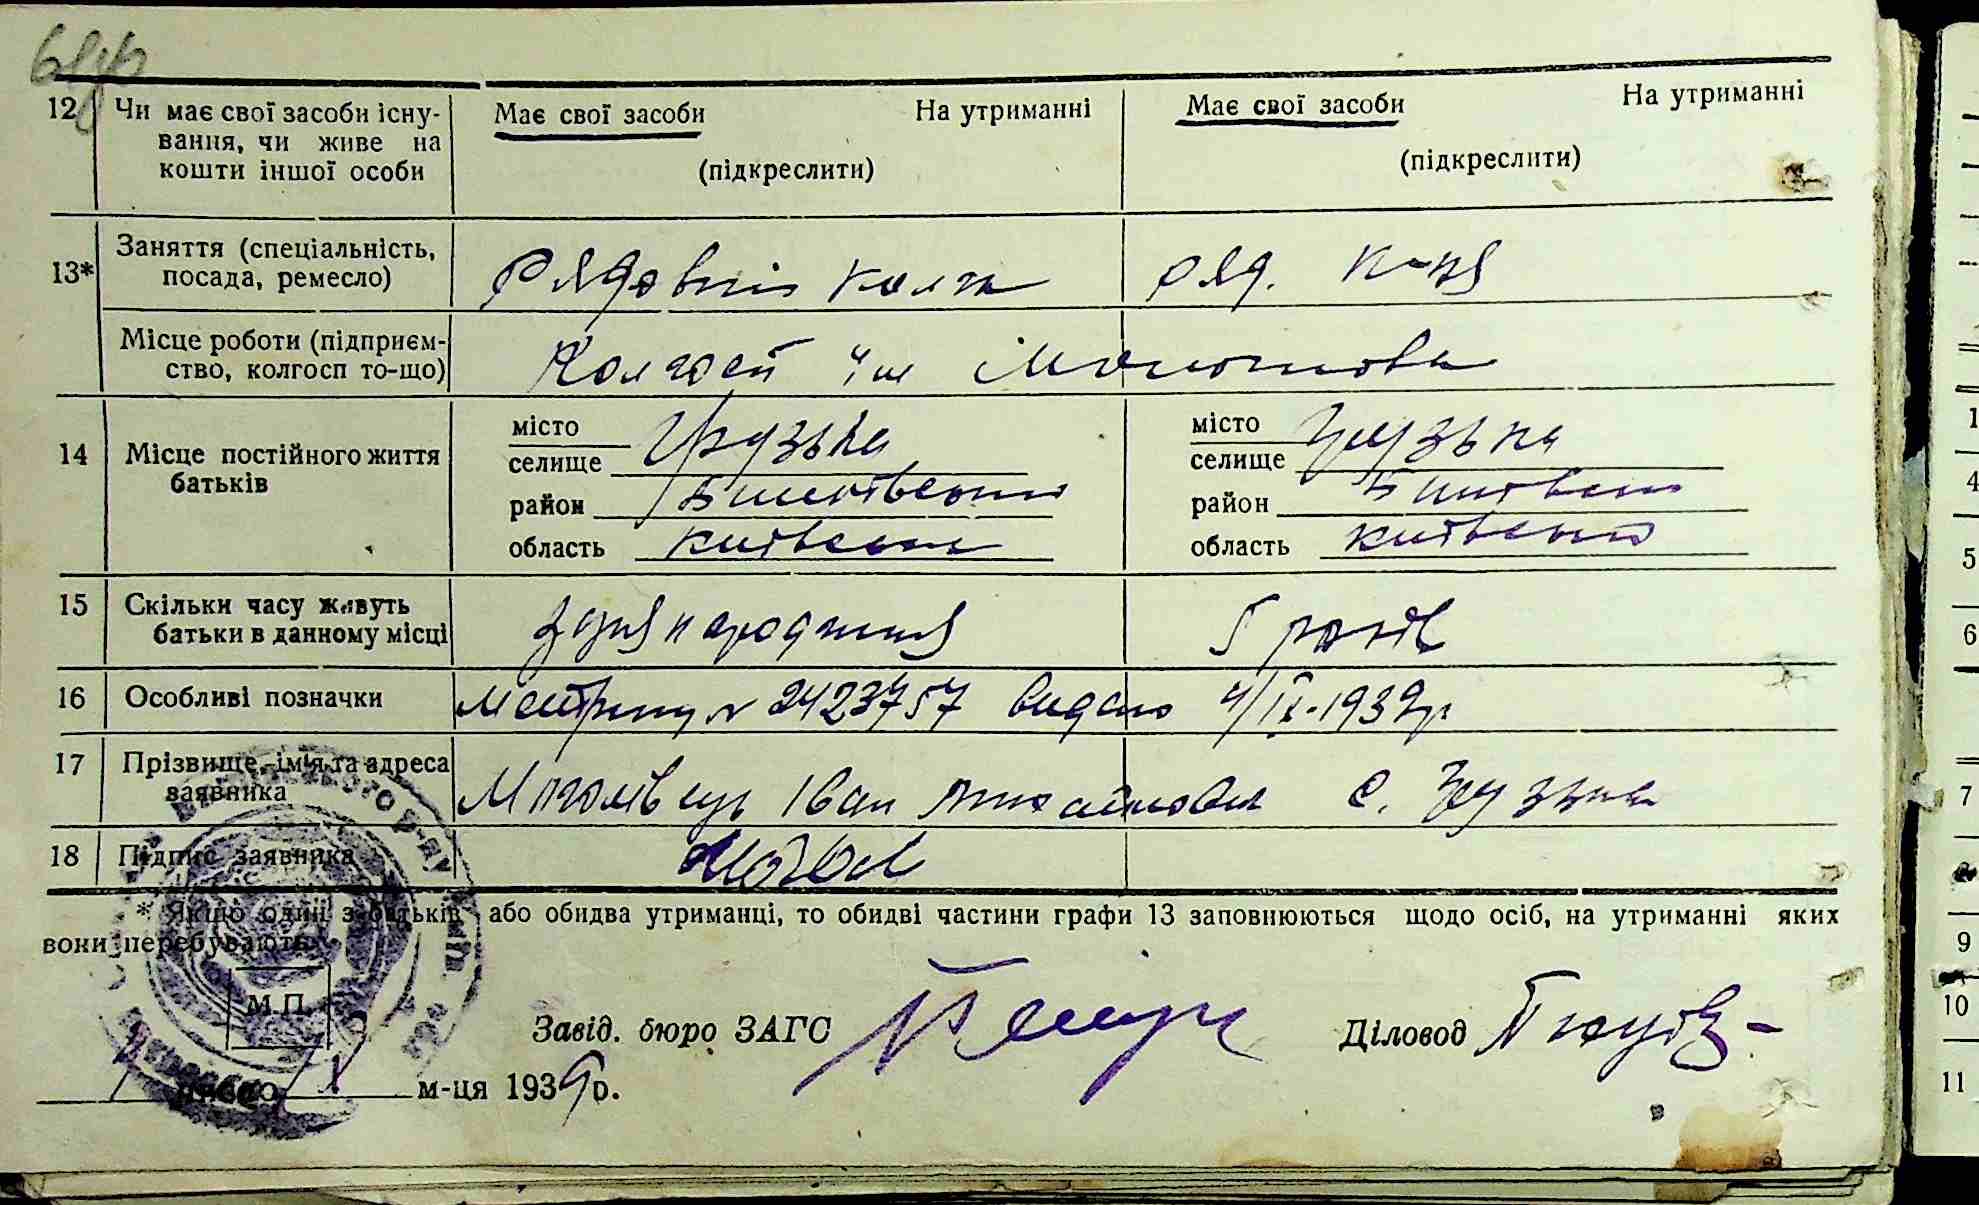 12 Чи має свої засоби існу-
вання, чи живе на
кошти іншої особи
Має свої засоби На утриманні
(підкреслити)
Має свої засоби На утриманні
(підкреслити)
13* Заняття (спеціальність,
посада, ремесло)
Рядовий колг
ряд. к-ця
Місце роботи (підприєм-
ство, колгосп то-що)
Колгосп ім Молотова
14 Місце постійного життя
батьків
місто
селище Грузька
район Бишівський
область Київська
місто
селище Грузька
район Бишівськ
область Київська
15 Скільки часу живуть
батьки в данному місці
з дня народження
5 років
16 Особливі позначки
Метрику № 2423757 видано 4/IX-1939р
17 Прізвище, ім'я та адреса
заявника
Іван Михайлович с. Грузька
18 Підпис заявника
* Якщо один з батьків або обидва утриманці, то обидві частини графи 13 заповнюються щодо осіб, на утриманні яких
вони перебувають.
М.П.
Завід. бюро ЗАГС
Діловод
м-ця 1939 р.
1
4
5
6
7
9
10
11